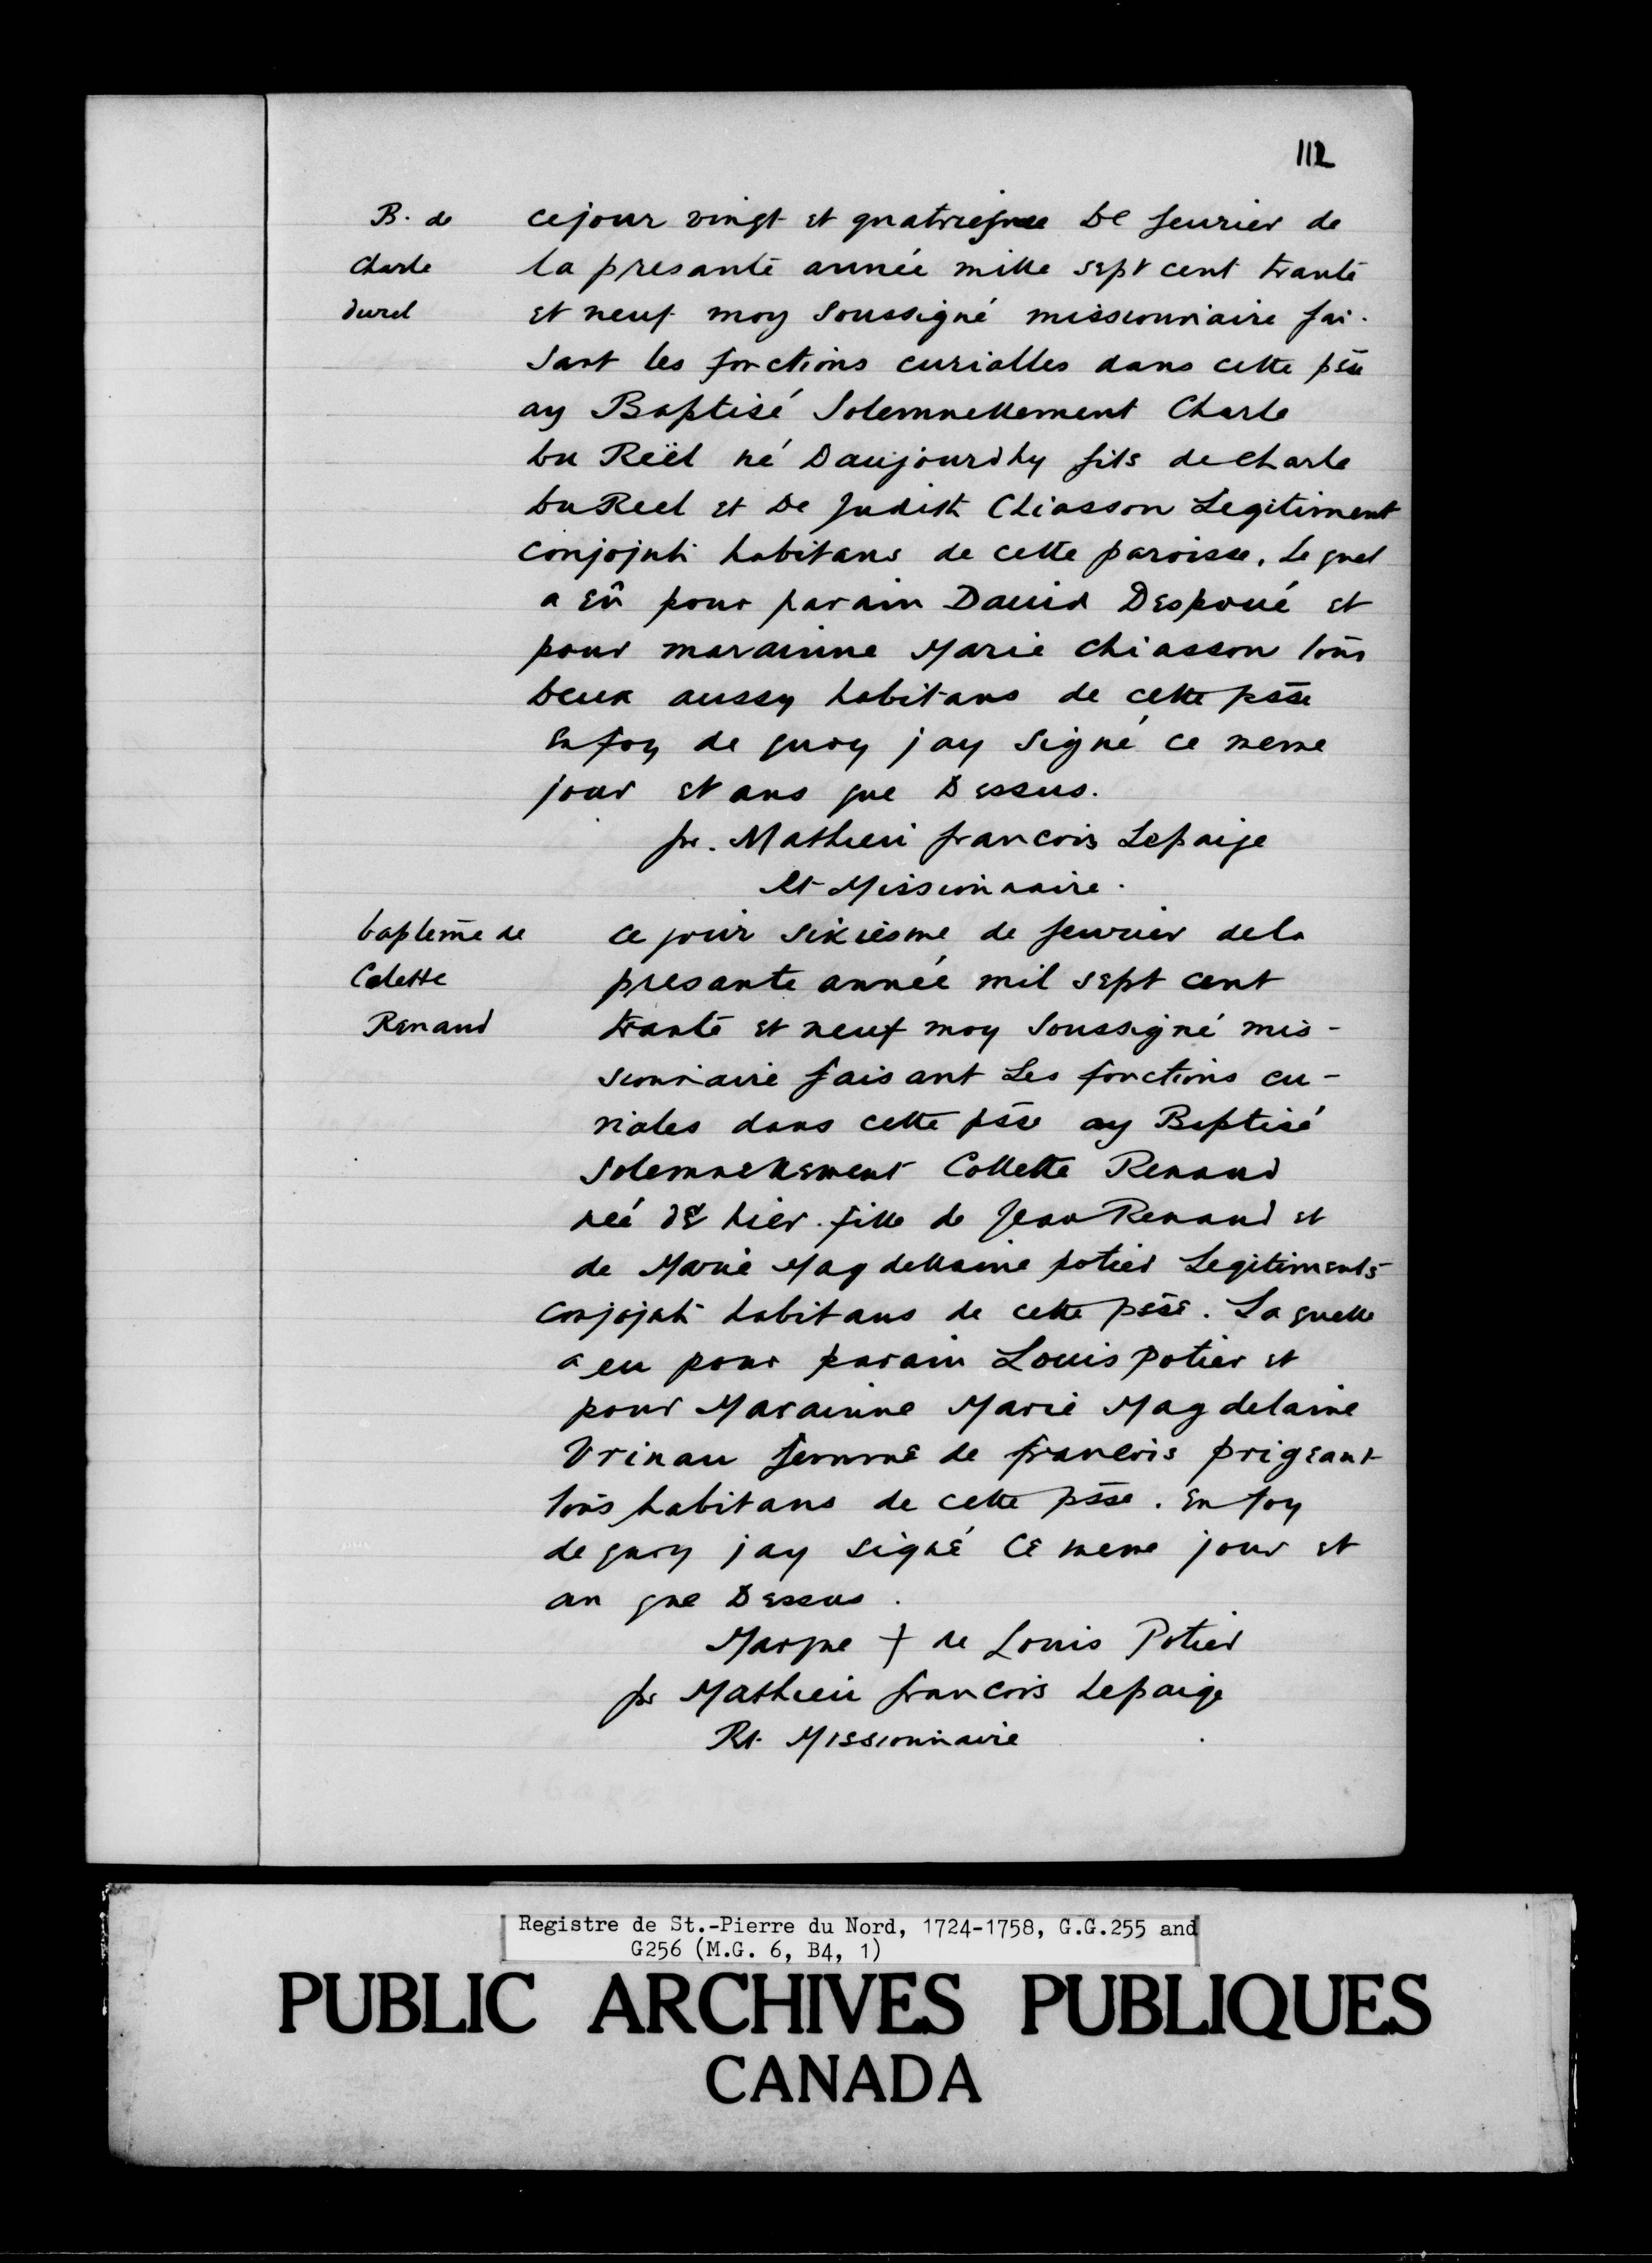 112
B. de
Charle
durel
ce jour vingt et quatriesme De feurier de
la presante année mille sept cent trante
et neuf moy Soussigné missionnaire fai-
sant les fonctions curialles dans cette pss̄e
ay Baptisé Solemnellement Charle
Du Reël né Daujourdhy fils de Charle
Du Reel et De Judith Chiasson Legitiment
conjojnts habitans de cette paroisse. Le quel
a eû pour parain Dauid Despoué et
pour marainne Marie Chiasson tous
Deux aussy habitans de cette pss̄e
En foy de quoy jay signé ce meme
jour et ans que Dessus.
fr. Mathieu francois Lepaige
Rt Missionnaire.
baptême de
Colette
Renaud
Ce jour sixiesme de feurier de la
presante année mil sept cent
trante et neuf moy Soussigné mis-
sionnaire faisant Les fonctions cu-
riales dans cette pss̄e ay Baptisé
Solemnellement Collette Renaud
neé de hier. fille de Jean Renaud et
de Marie Magdellaine potier Legitiments
conjojnts habitans de cette pss̄e. La quelle
a eu pour parain Louis potier et
pour Marainne Marie Magdelaine
Vrinau femme de francois prigeant
tous habitans de cette pss̄e. En foy
de quoy jay signé Ce meme jour et
an que Dessus.
Marque + de Louis Potier
fr Mathieu francois Lepaige
Rt. Missionnaire
Registre de St.-Pierre du Nord, 1724-1758, G.G.255 and
G256 (M.G. 6, B4, 1)
PUBLIC ARCHIVES PUBLIQUES
CANADA